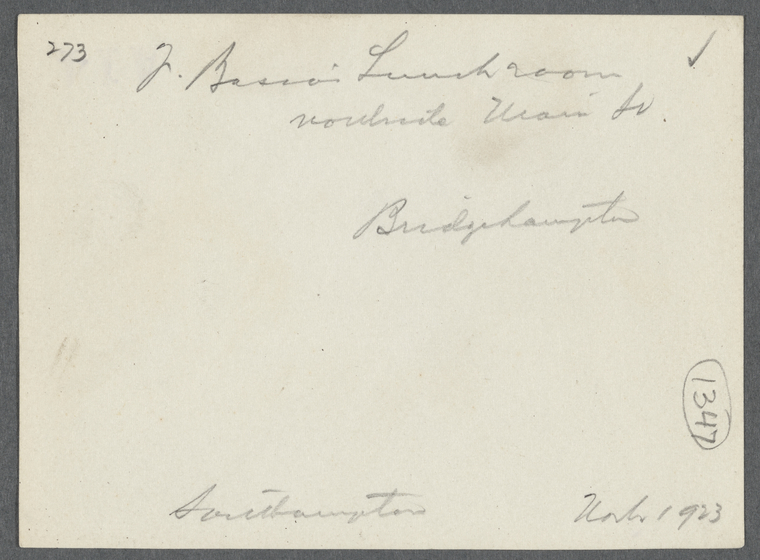 273
J. Basso's Lunch room
northside Main St.
Bridgehampton
1347
Southampton
Nov. 1923